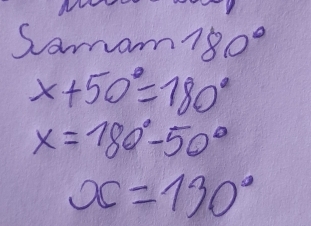 Samam 180°
x+50°=180°
x=180°-50°
x=130°